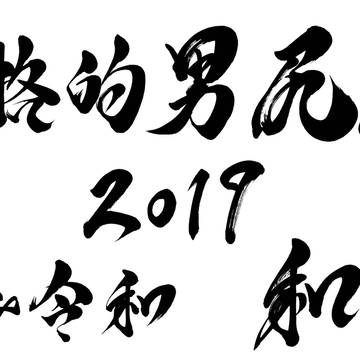 格的男尻
2019
令和 和